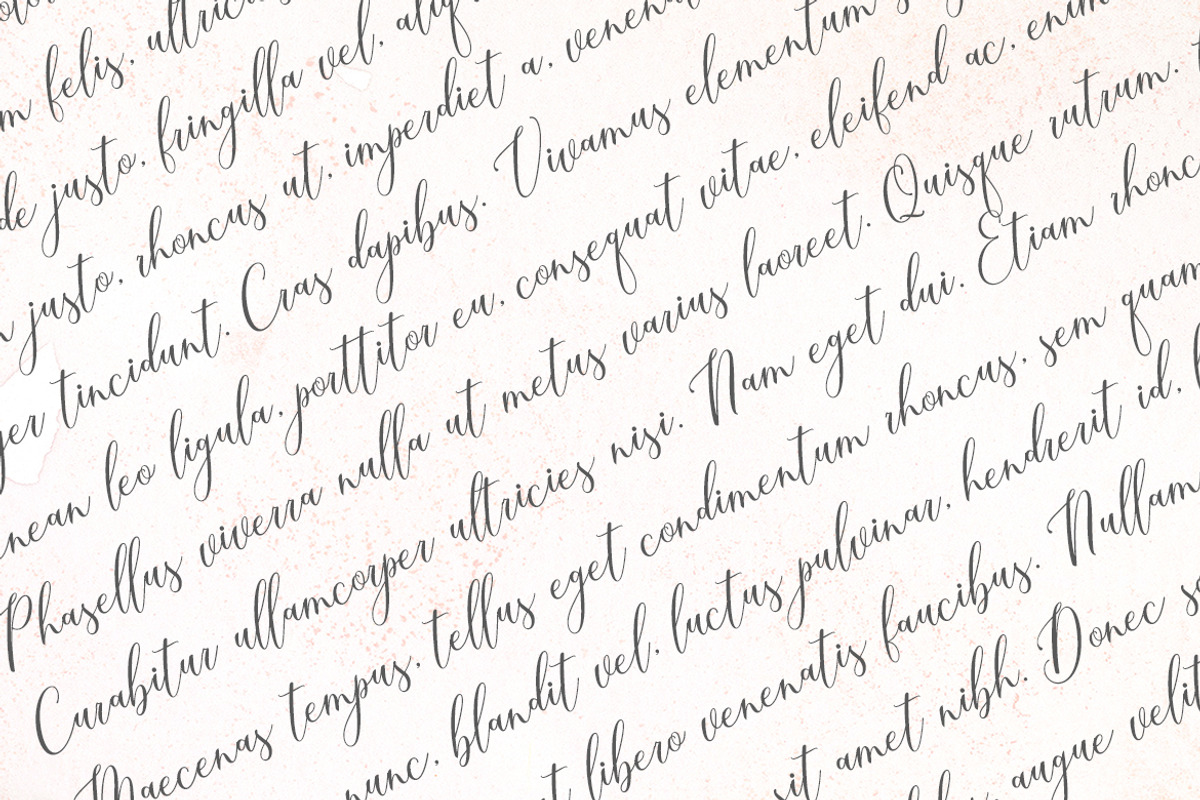 felis, ultricies
justo, fringilla vel, aliq
justo, rhoncus ut, imperdiet a, venena
tincidunt. Cras dapibus. Vivamus elementum
nean leo ligula, porttitor eu, consequat vitae, eleifend ac, enim
Phasellus viverra nulla ut metus varius laoreet. Quisque rutrum.
Curabitur ullamcorper ultricies nisi. Nam eget dui. Etiam rhonc
Maecenas tempus, tellus eget condimentum rhoncus, sem quam
nunc, blandit vel, luctus pulvinar, hendrerit id,
libero venenatis faucibus. Nullam
sit amet nibh. Donec
augue velit